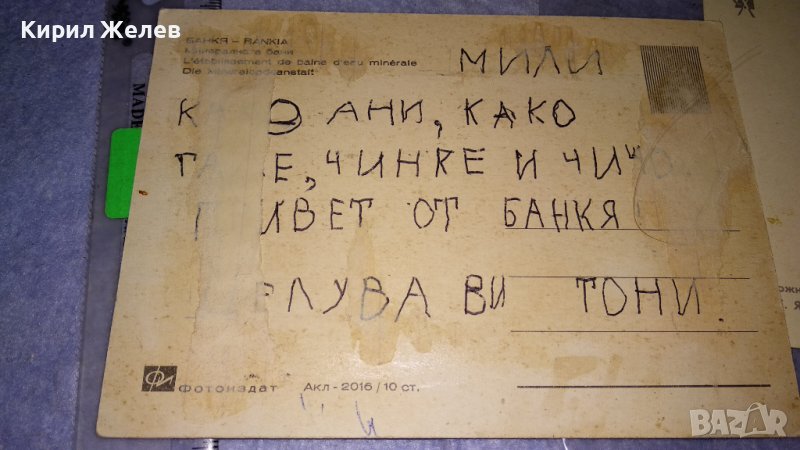 Кирил Желев
БАНКЯ – BANKIA
Минералната баня
L'établissement de bains d'eau minérale
Die Mineralbadeanstalt
МИЛИ
АНИ, КАКО
ЧИНКЕ И ЧИЧО
ОТ БАНКЯ
ВИ ТОНИ.
Фотоиздат Акл - 2016 / 10 ст.
BAZAR